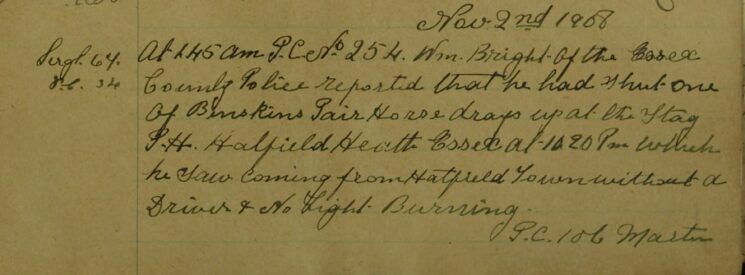 Nov 2nd 1908
Sergt. 64.
P.C. 34
At 1.45 am P.C. No 254. Wm. Bright of the Essex
County Police reported that he had shut one
Of Benskins Pair Horse drays up at the Stag
P.H. Hatfield Heath Essex at 10 20 Pm which
he Saw Coming from Hatfield Town without a
Driver & No Light Burning.
P.C. 106 Martin